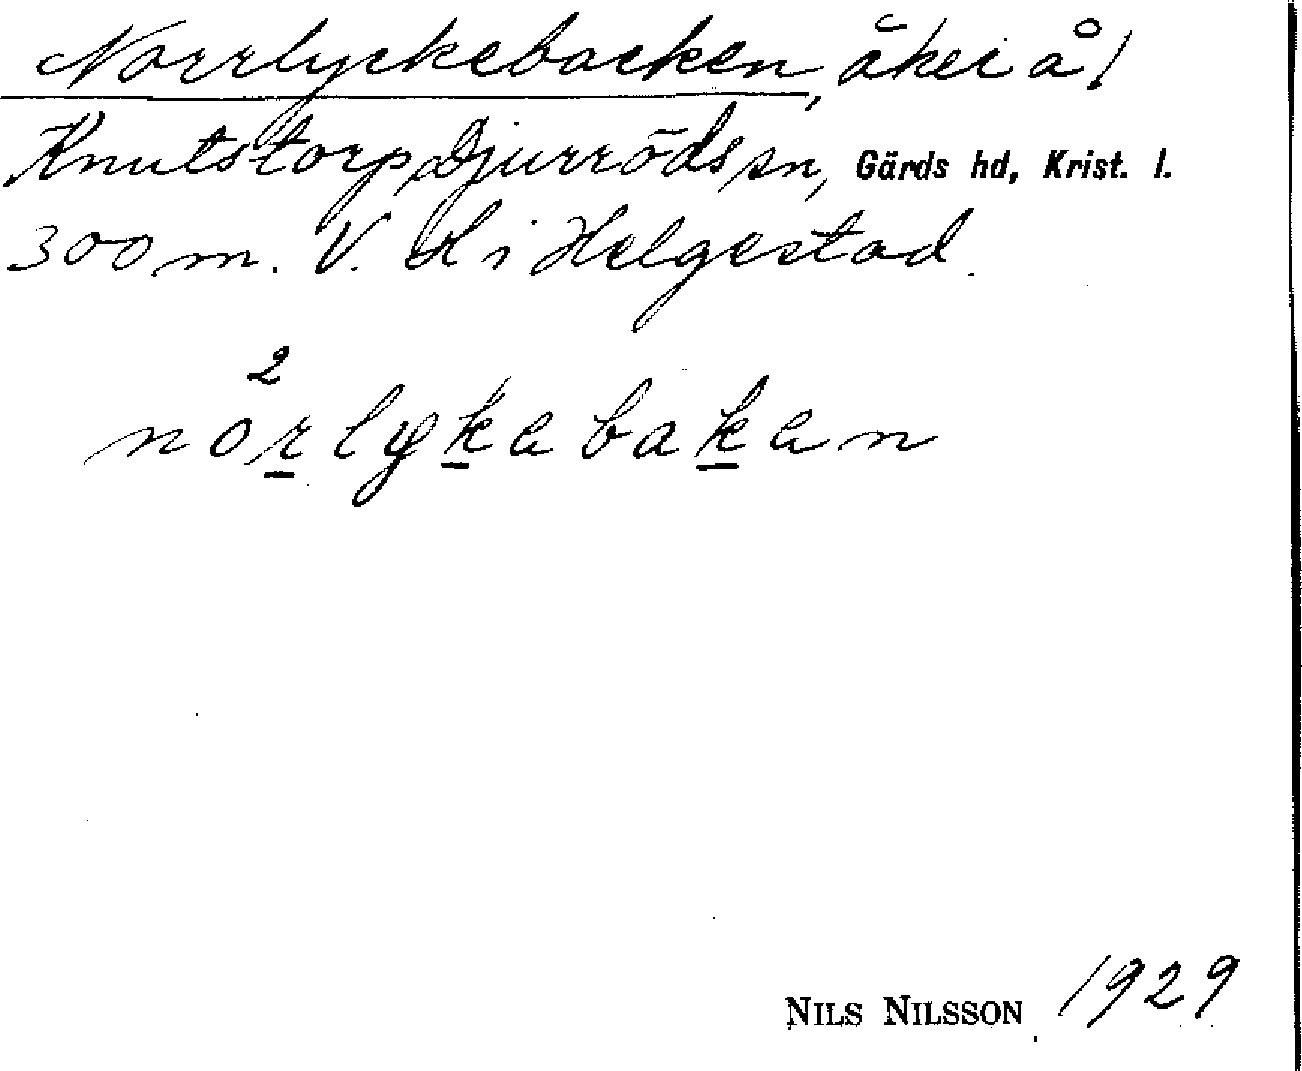 Norrlyckebacken, åker å 1
Knutstorp, Djurröds sn, Gärds hd, Krist. l.
300 m. V. kl i Helgestad.
2
norlykebaken
NILS NILSSON 1929